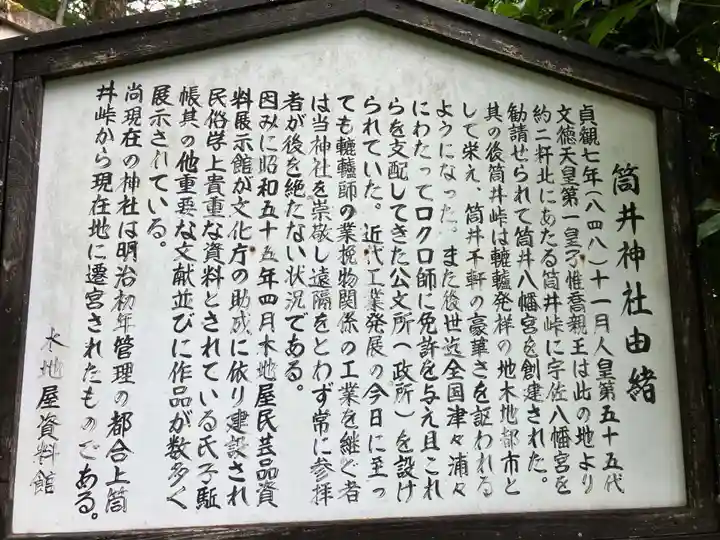 筒井神社由緒
貞観七年(八四八)十一月人皇第五十五代
文徳天皇第一皇子惟喬親王は此の地より
約二粁北にあたる筒井峠に宇佐八幡宮を
勧請せられて筒井八幡宮を創建された。
其の後筒井峠は轆轤発祥の地木地都市と
して栄え、筒井千軒の豪華さを証われる
ようになった。また後世迄全国津々浦々
にわたってロクロ師に免許を与え且これ
らを支配してきた公文所(政所)を設け
られていた。近代工業発展の今日に至っ
ても轆轤師の業挽物関係の工業を継ぐ者
は当神社を崇敬し遠隔をとわず常に参拝
者が後を絶たない状況である。
因みに昭和五十五年四月木地屋民芸品資
料展示館が文化庁の助成に依り建設され
民俗学上貴重な資料とされている氏子駈
帳其の他重要な文献並びに作品が数多く
展示されている。
尚現在の神社は明治初年管理の都合上筒
井峠から現在地に遷宮されたものである。
木地屋資料館